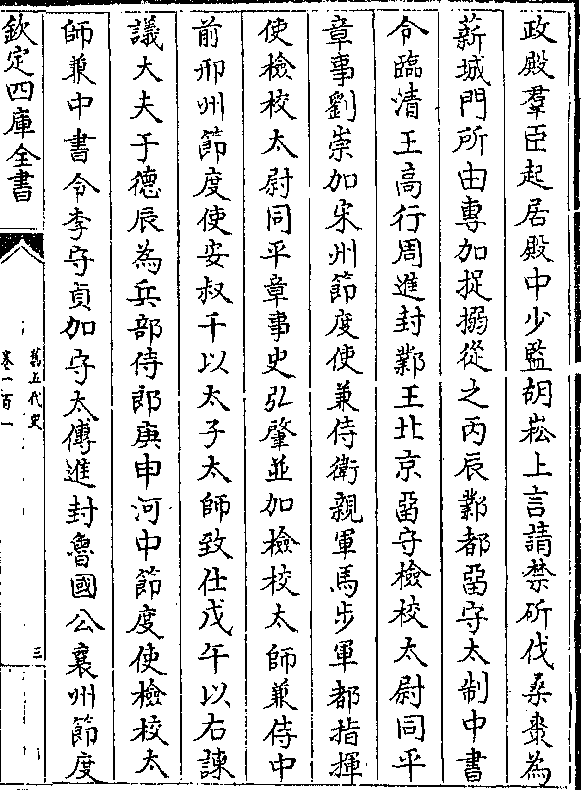 政殿羣臣起居殿中少監胡崧上言請禁斫伐桑棗為
薪城門所由專加捉搦從之丙辰鄴都留守太制中書
令臨清王高行周進封鄴王北京留守檢校太尉同平
章事劉崇加宋州節度使兼侍衛親軍馬步軍都指揮
使檢校太尉同平章事史弘肇並加檢校太師兼侍中
前邢州節度使安叔千以太子太師致仕戊午以右諫
議大夫于德辰為兵部侍郎庚申河中節度使檢校太
師兼中書令李守貞加守太傅進封魯國公襄州節度
欽定四庫全書
舊五代史
卷一百一
三